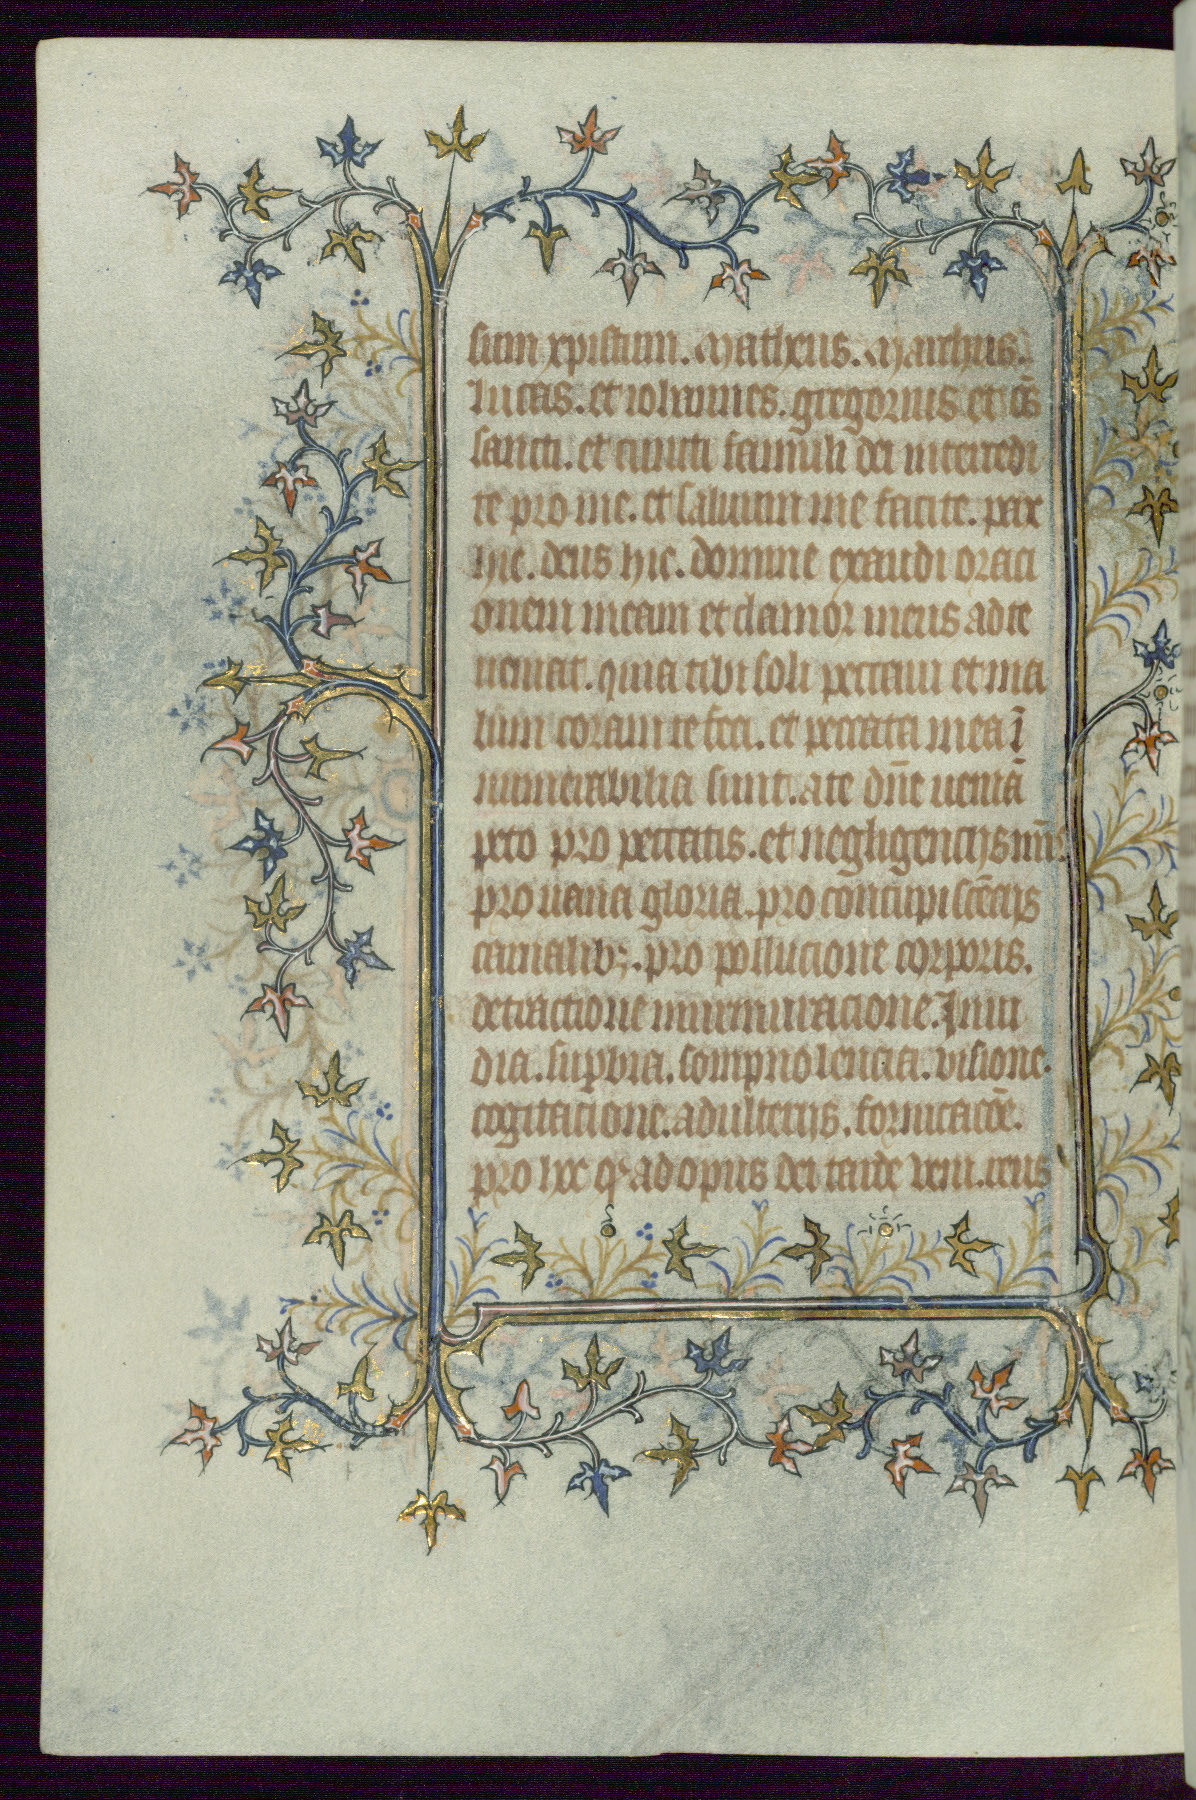 sium xpistum. Matheus. Marchus.
Lucas. et iohannes. gregorius et oēs
sancti. et cuncti famuli dei intercedi
te pro me. et saluum me facite. pax
hic. deus hic. domine exaudi oraci
onem meam et clamor meus ad te
ueniat. quia tibi soli peccaui et ma
lum coram te feci. et peccata mea ī
numerabilia sunt. a te dn̄e ueniā
peto pro peccatis. et negligencijs
pro uana gloria. pro concupiscēcijs
carnalibꝫ. pro pollucione corporis.
detractione murmuracione. Inui
dia. suꝑbia. sompnolencia. visione.
cogitacione. adulterijs. fornicacōe.
pro hoc qꝰ ad opus dei tarde veni. reus